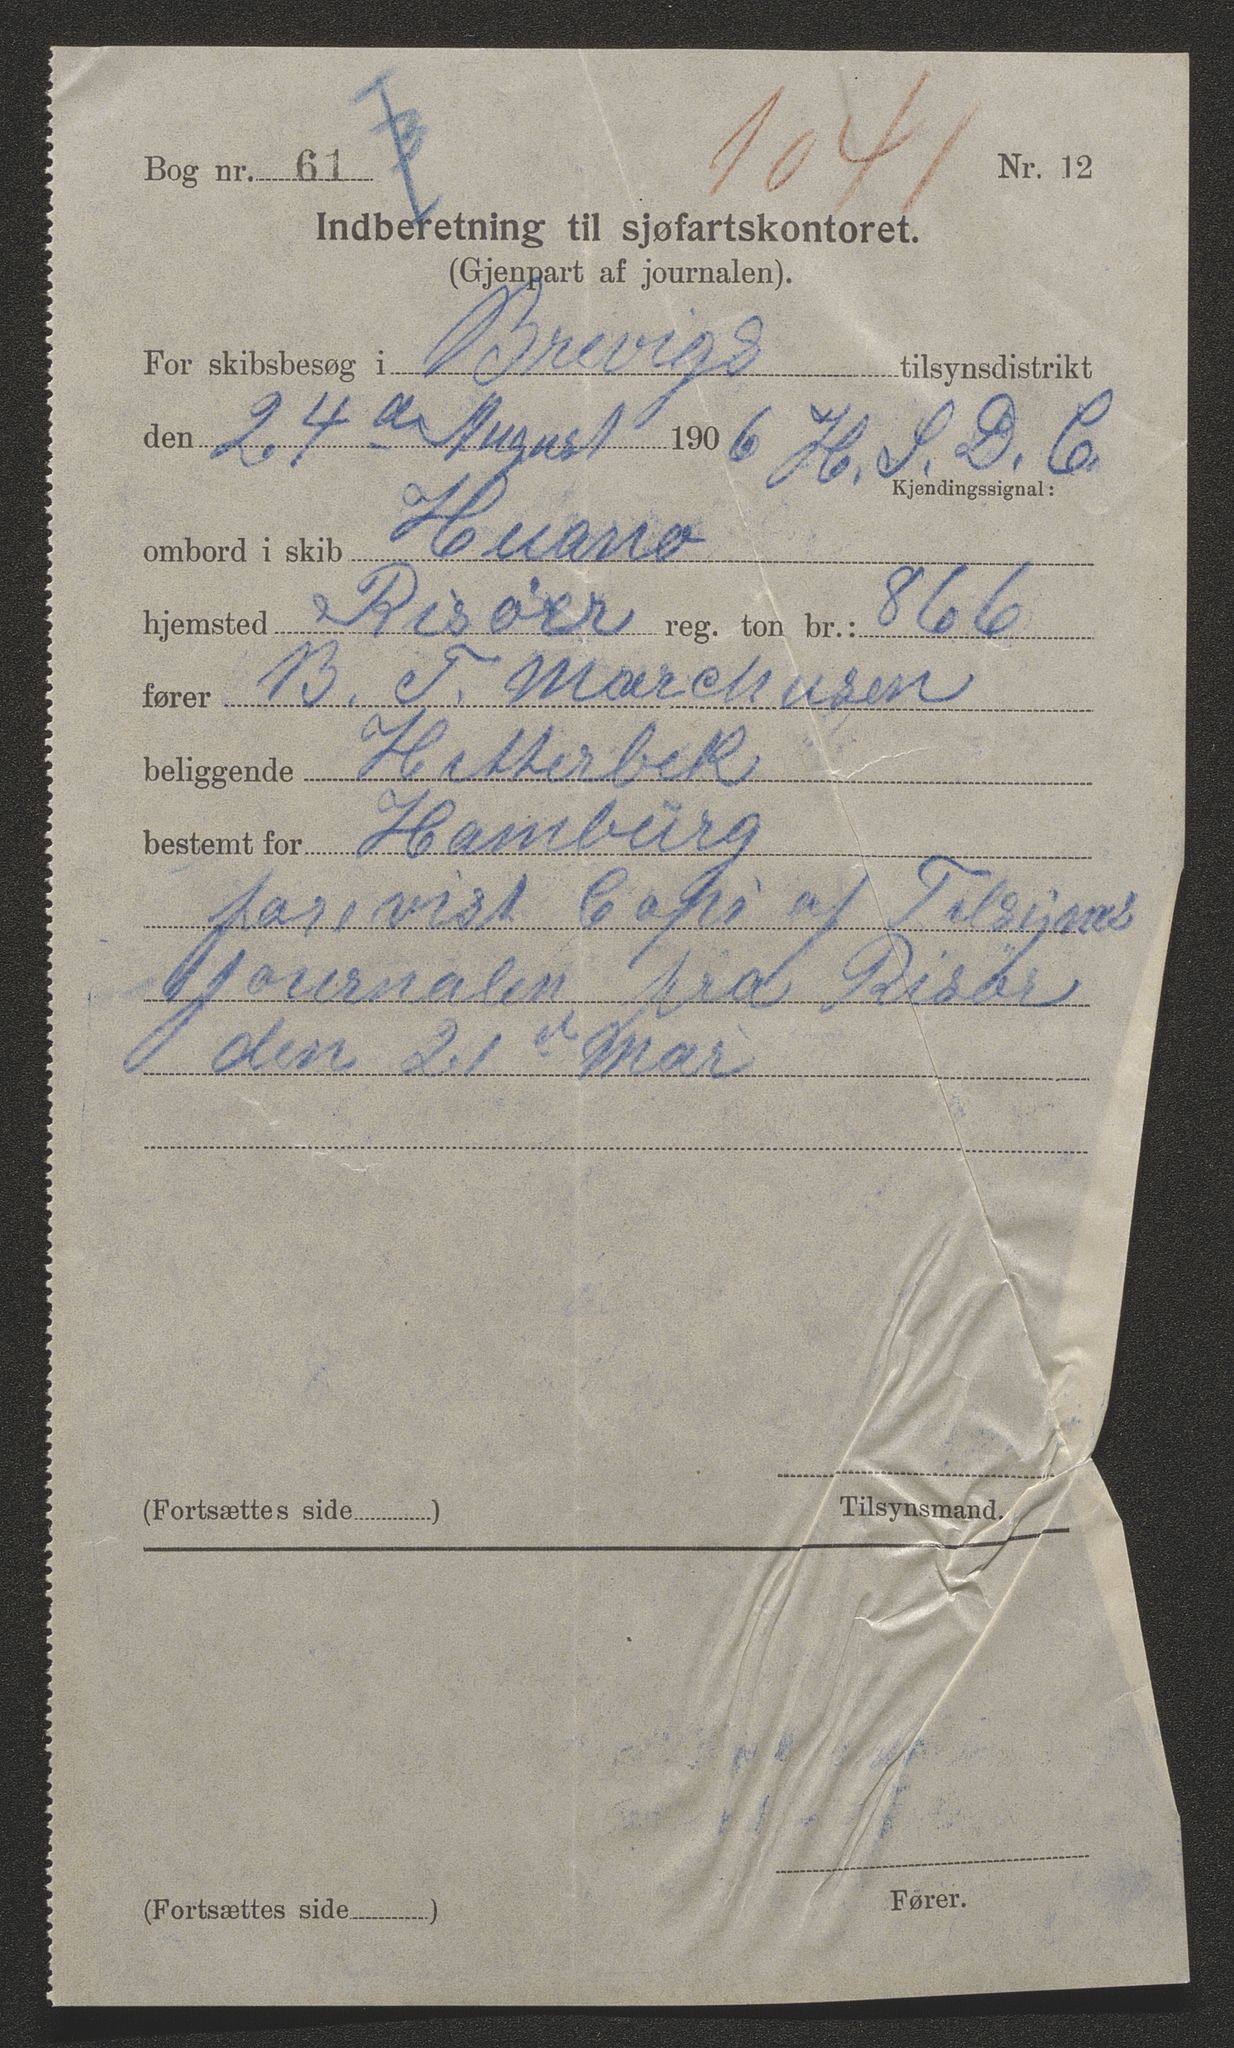 1041
Bog nr. 61 Nr. 12
Indberetning til sjøfartskontoret.
(Gjenpart af journalen).
For skibsbesøg i Brevigs tilsynsdistrikt
den 24de August 1906 H. S. D. C.
Kjendingssignal:
ombord i skib Huano
hjemsted Risöer reg. ton br.: 866
fører B. T. Marchusen
beliggende Hitterbek
bestemt for Hambürg
forevist Copi af Tilsyns
journalen fra Risör
den 21 d Mai
(Fortsættes side ) Tilsynsmand.
Fører.
(Fortsættes side )